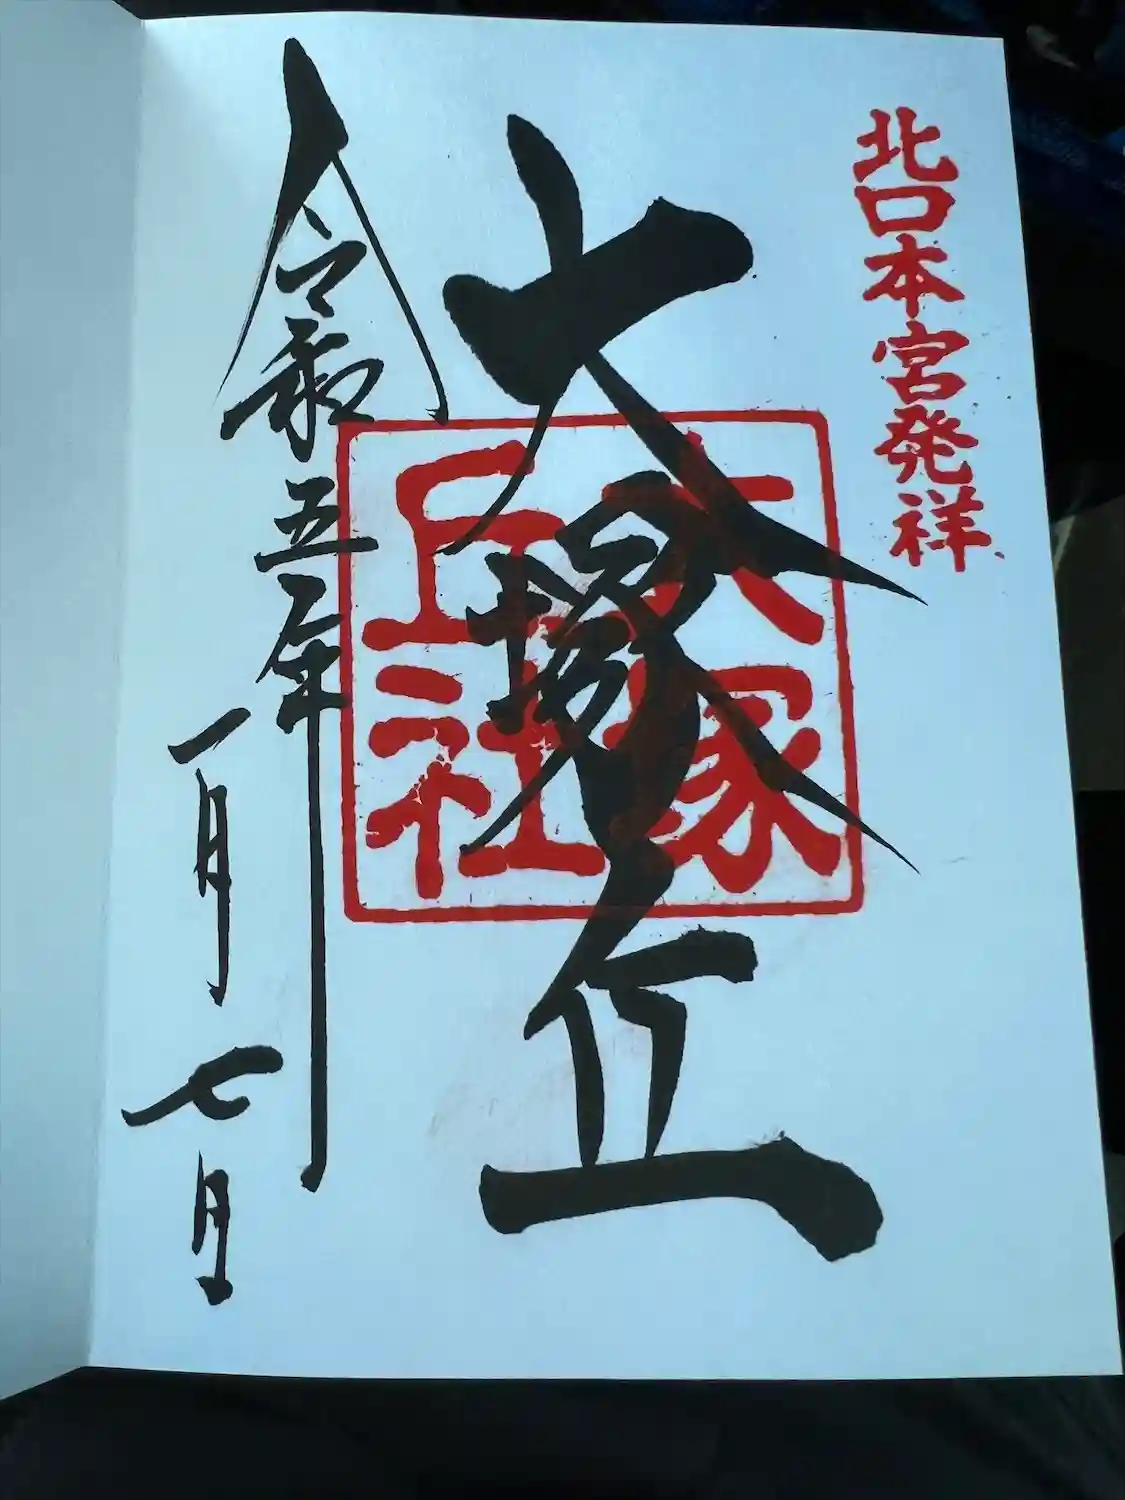 北口本宮発祥
大塚丘
大塚丘社
令和五年
一月七日